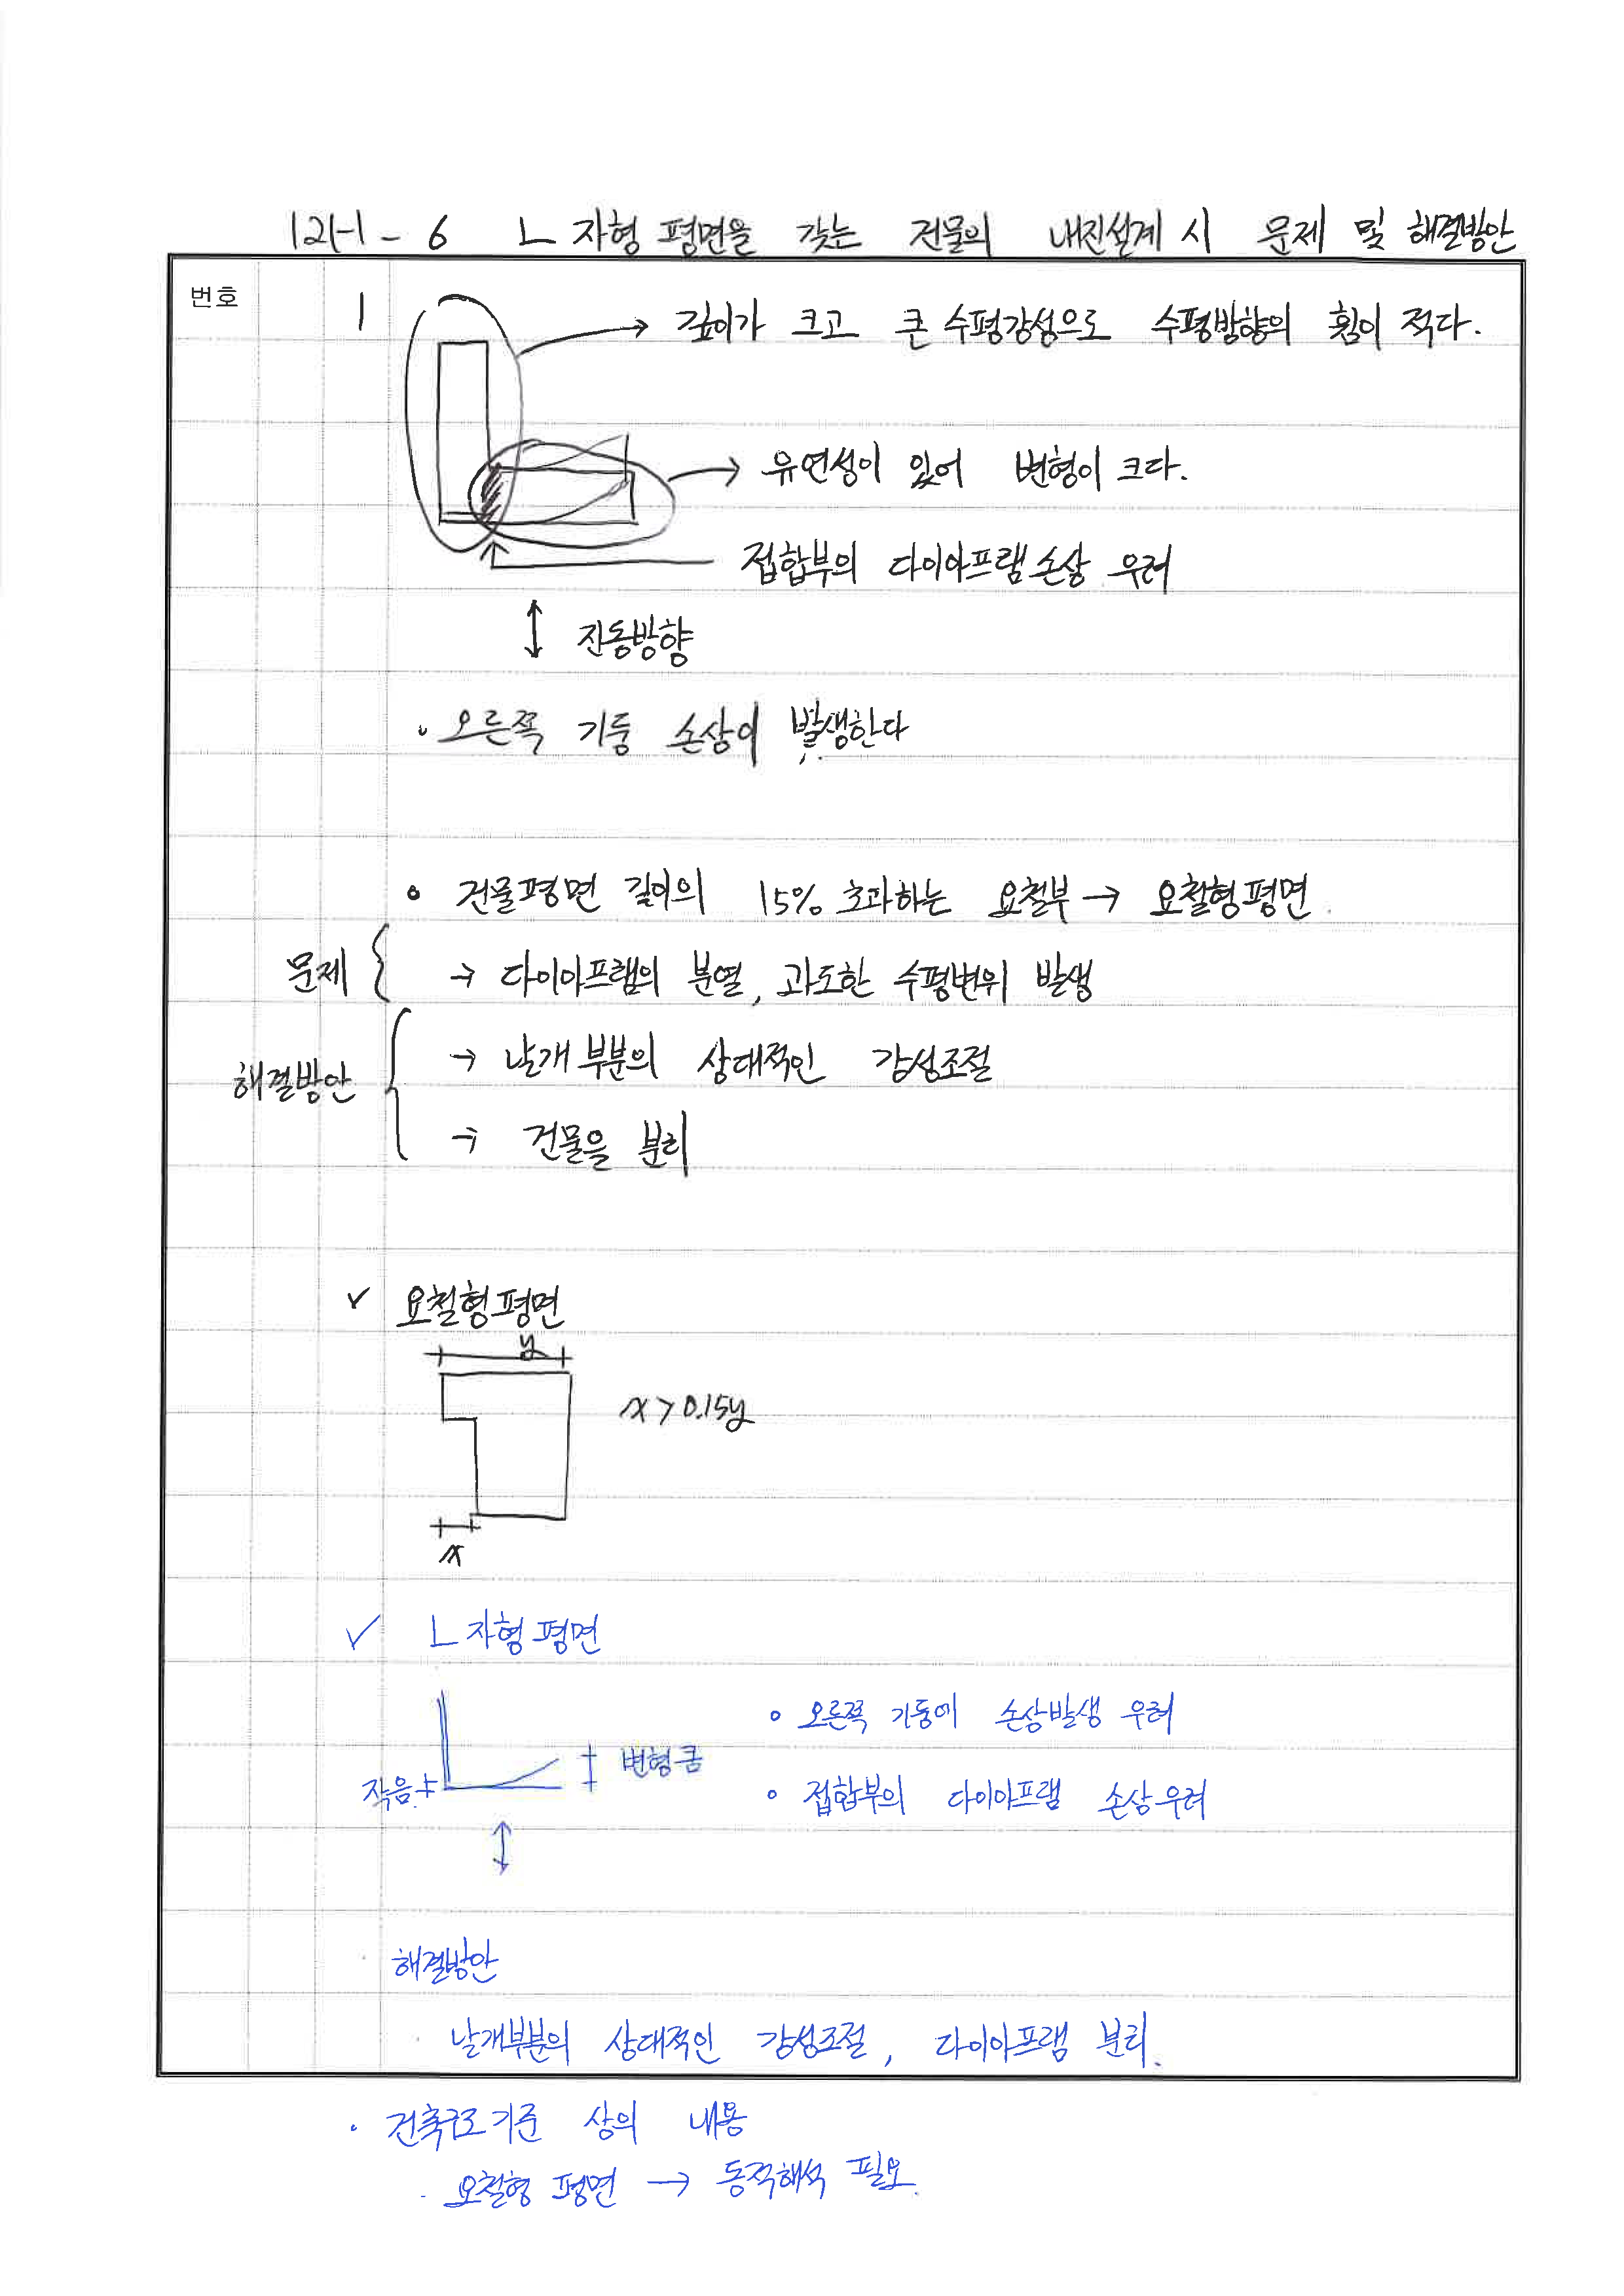 121-1-6 ㄴ자형 평면을 갖는 건물의 내진설계 시 문제 및 해결방안
번호
1
깊이가 크고 큰 수평강성으로 수평방향의 휨이 적다.
유연성이 있어 변형이 크다.
접합부의 다이아프램 손상 우려
진동방향
· 오른쪽 기둥 손상이 발생한다
∘ 건물평면 길이의 15% 초과하는 요철부 → 요철형평면.
문제 { → 다이아프램의 분열, 과도한 수평변위 발생
해결방안 { → 날개 부분의 상대적인 강성조절
→ 건물을 분리
✓ 요철형평면
y
x > 0.15y
x
✓ ㄴ자형평면
∘ 오른쪽 기둥에 손상발생 우려
변형큼
작음
∘ 접합부의 다이아프램 손상우려
· 해결방안
· 날개부분의 상대적인 강성조절, 다이아프램 분리.
· 건축구조기준 상의 내용
· 요철형 평면 → 동적해석 필요.